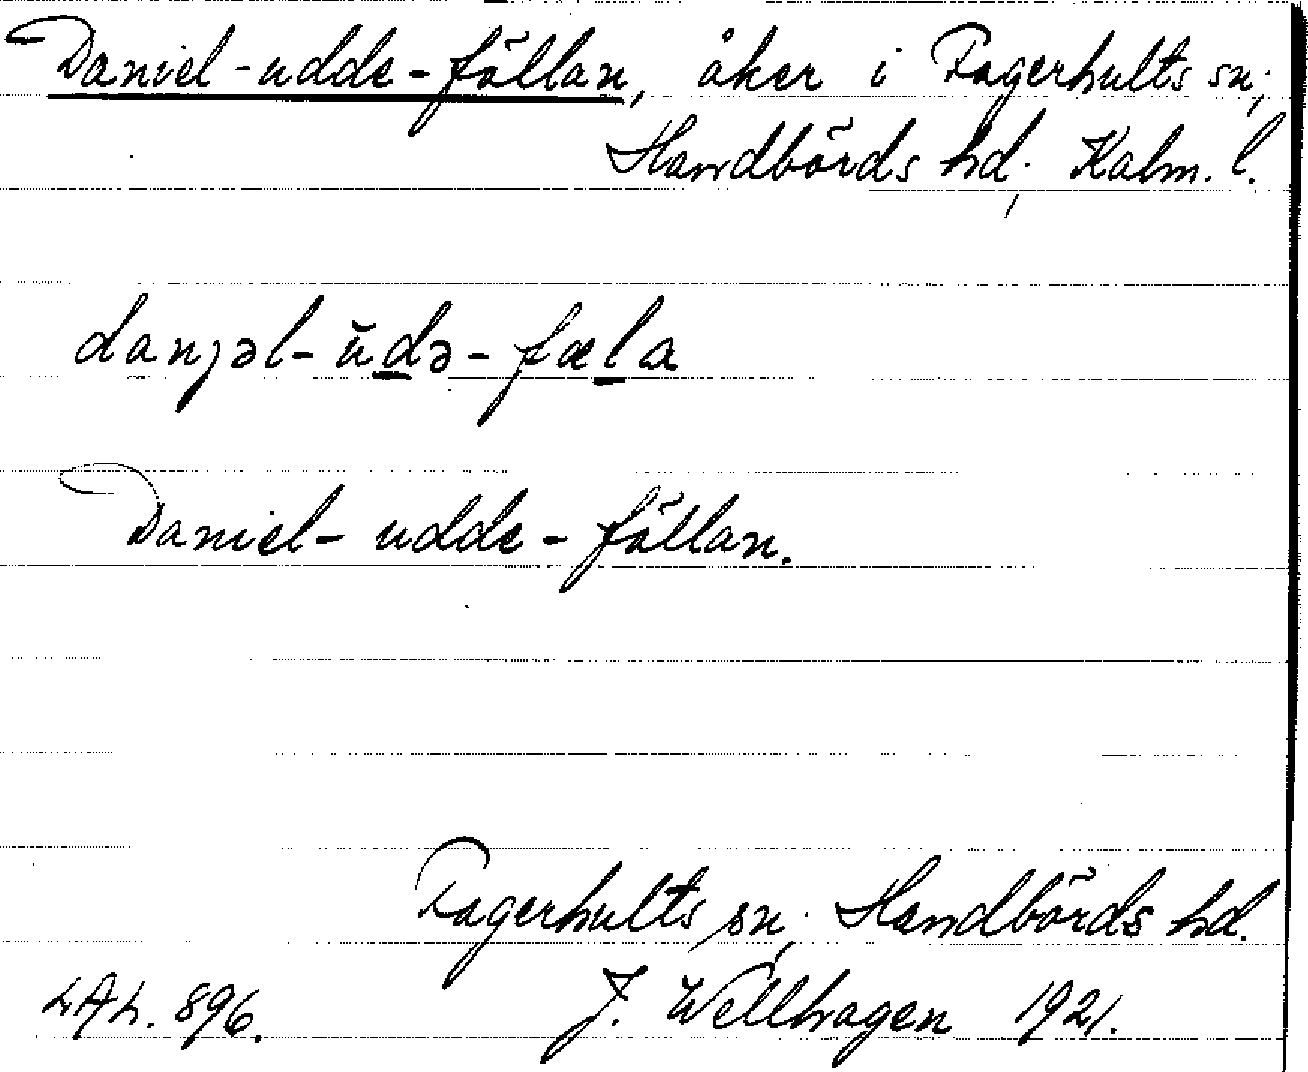 Daniel-udde-fällan, åker i Fagerhults sn;
Handbörds hd; Kalm. l.
danjəl-ŭdə-fæla
Daniel-udde-fällan.
Fagerhults sn; Handbörds hd.
LAL. 896. J. Wellhagen 1921.